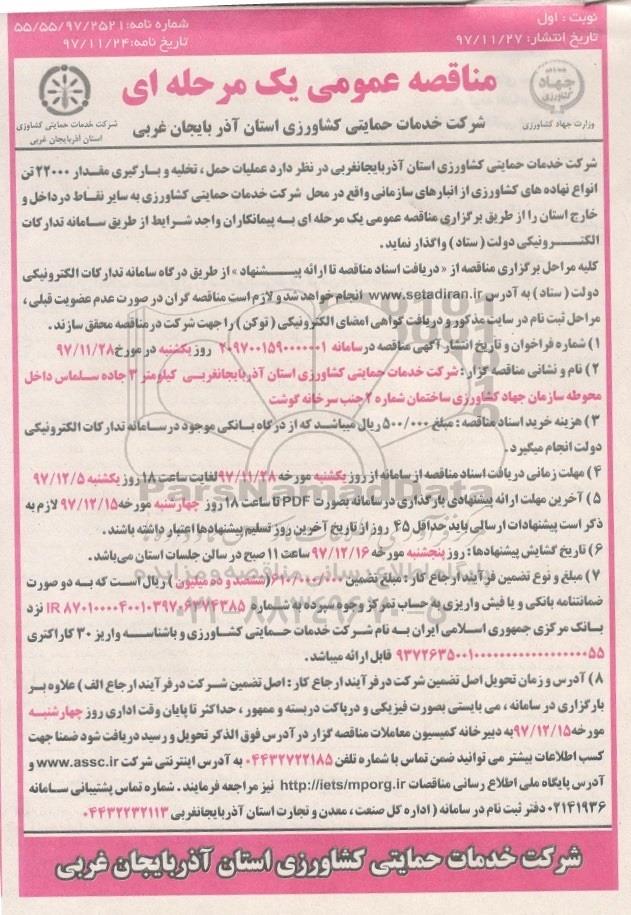 نوبت : اول
تاریخ انتشار: ۹۷/۱۱/۲۷
شماره نامه: ۵۵/۵۵/۹۷/۲۵۲۱
تاریخ نامه: ۹۷/۱۱/۲۴
مناقصه عمومی یک مرحله ای
شرکت خدمات حمایتی کشاورزی استان آذر بایجان غربی
جهاد
کشاورزی
وزارت جهاد کشاورزی
شرکت خدمات حمایتی کشاوزی
استان آذربایجان غربی
شرکت خدمات حمایتی کشاورزی استان آذربایجانغربی در نظر دارد عملیات حمل ، تخلیه و بارگیری مقدار ۲۲۰۰۰ تن
انواع نهاده های کشاورزی از انبارهای سازمانی واقع در محل شرکت خدمات حمایتی کشاورزی به سایر نقاط در داخل و
خارج استان را از طریق برگزاری مناقصه عمومی یک مرحله ای به پیمانکاران واجد شرایط از طریق سامانه تدارکات
الکترونیکی دولت ( ستاد ) واگذار نماید .
کلیه مراحل برگزاری مناقصه از « دریافت اسناد مناقصه تا ارائه پیشنهاد » از طریق درگاه سامانه تدارکات الکترونیکی
دولت ( ستاد ) به آدرس www.setadiran.ir انجام خواهد شد و لازم است مناقصه گران در صورت عدم عضویت قبلی ،
مراحل ثبت نام در سایت مذکور و دریافت گواهی امضای الکترونیکی ( توکن ) را جهت شرکت در مناقصه محقق سازند .
۱) شماره فراخوان و تاریخ انتشار آگهی مناقصه در سامانه ۲۰۹۷۰۰۱۵۹۰۰۰۰۰۰۱ روز یکشنبه در مورخ ۹۷/۱۱/۲۸
۲) نام و نشانی مناقصه گزار : شرکت خدمات حمایتی کشاورزی استان آذربایجانغربی کیلومتر ۳ جاده سلماس داخل
محوطه سازمان جهاد کشاورزی ساختمان شماره ۲ جنب سرخانه گوشت
۳) هزینه خرید اسناد مناقصه : مبلغ ۵۰۰/۰۰۰ ریال میباشد که از درگاه بانکی موجود در سامانه تدارکات الکترونیکی
دولت انجام میگیرد .
۴) مهلت زمانی دریافت اسناد مناقصه از سامانه از روز یکشنبه مورخه ۹۷/۱۱/۲۸ لغایت ساعت ۱۸ روز یکشنبه ۹۷/۱۲/۵
۵) آخرین مهلت ارائه پیشنهادی بارگذاری در سامانه بصورت PDF تا ساعت ۱۸ روز چهارشنبه مورخه ۹۷/۱۲/۱۵ لازم به
ذکر است پیشنهادات ارسالی باید حداقل ۴۵ روز از تاریخ آخرین روز تسلیم پیشنهادها اعتبار داشته باشند .
۶) تاریخ گشایش پیشنهادها : روز پنجشنبه مورخه ۹۷/۱۲/۱۶ ساعت ۱۱ صبح در سالن جلسات استان می‌باشد .
۷) مبلغ و نوع تضمین فرآیند ارجاع کار : مبلغ تضمین ۶۱۰/۰۰۰/۰۰۰ (ششصد و ده میلیون ) ریال است که به دو صورت
ضمانتنامه بانکی و یا فیش واریزی به حساب تمرکز وجوه سپرده به شماره IR ۸۷۰۱۰۰۰۰۴۰۰۱۰۳۹۷۰۶۳۷۴۳۸۵ نزد
بانک مرکزی جمهوری اسلامی ایران به نام شرکت خدمات حمایتی کشاورزی و باشناسه واریز ۳۰ کاراکتری
قابل ارائه میباشد .
۸) آدرس و زمان تحویل اصل تضمین شرکت در فرآیند ارجاع کار : اصل تضمین شرکت در فرآیند ارجاع الف ) علاوه بر
بارگزاری در سامانه ، می بایستی بصورت فیزیکی و در پاکت دربسته و ممهور ، حداکثر تا پایان وقت اداری روز چهارشنبه
مورخه ۹۷/۱۲/۱۵ به دبیرخانه کمیسیون معاملات مناقصه گزار در آدرس فوق الذکر تحویل و رسید دریافت شود ضمنا جهت
کسب اطلاعات بیشتر می توانید ضمن تماس با شماره تلفن ۰۴۴۳۲۷۲۲۱۸۵ به آدرس اینترنتی شرکت www.assc.ir و
آدرس پایگاه ملی اطلاع رسانی مناقصات http://iets/mporg.ir نیز مراجعه فرمایند . شماره تماس پشتیبانی سامانه
۰۲۱۴۱۹۳۶ دفتر ثبت نام در سامانه ( اداره کل صنعت ، معدن و تجارت استان آذربایجانغربی ۰۴۴۳۲۲۳۲۱۱۳
شرکت خدمات حمایتی کشاورزی استان آذربایجان غربی